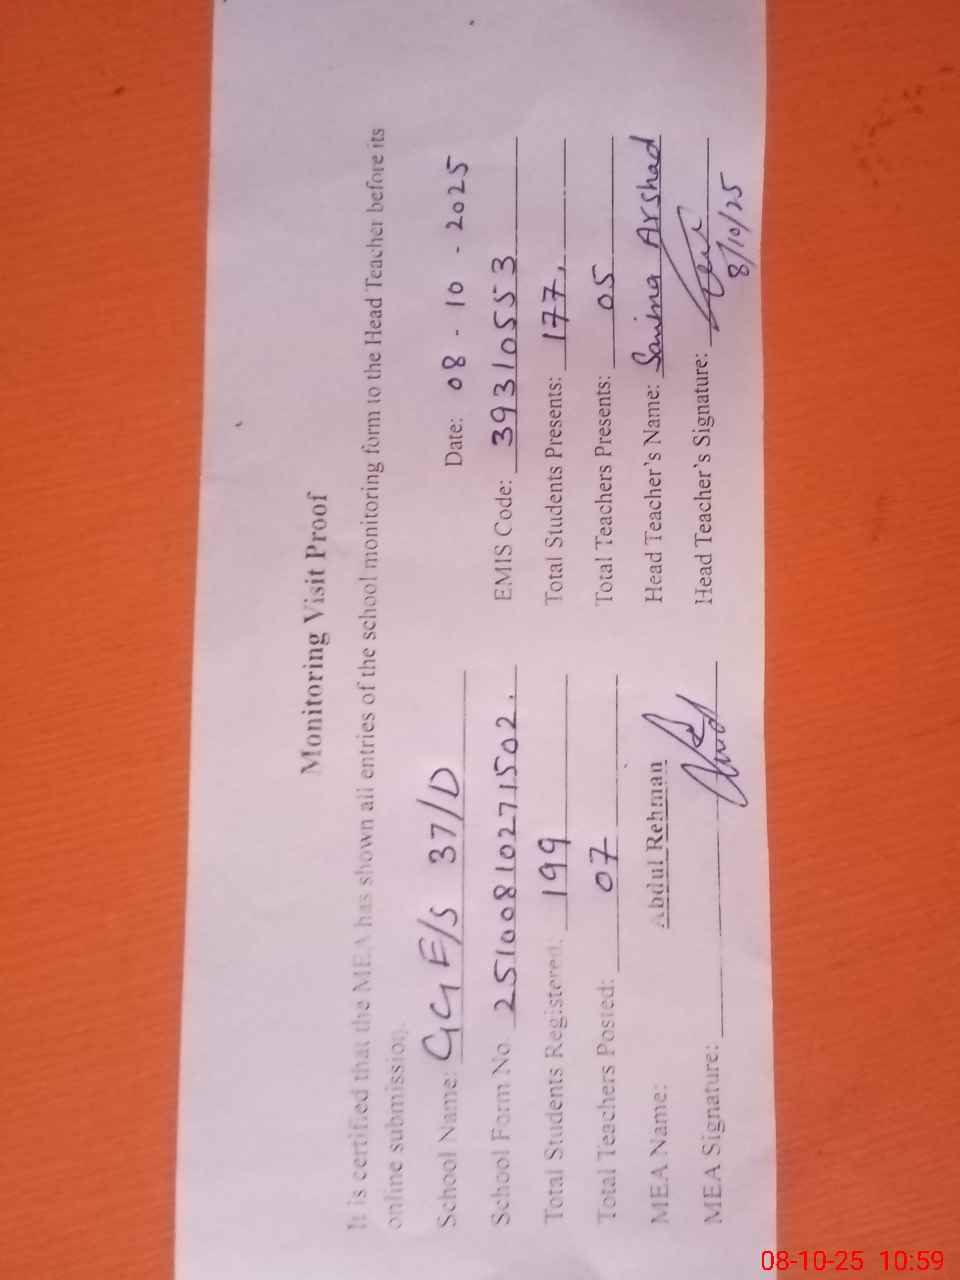 Monitoring Visit Proof
It is certified that the MEA has shown all entries of the school monitoring form to the Head Teacher before its
online submission.
School Name: GGE/S 37/D Date: 08 - 10 - 2025
School Form No. 25100810271502. EMIS Code: 39310553
Total Students Registered: 199 Total Students Presents: 177,
Total Teachers Posted: 07 Total Teachers Presents: 05
MEA Name: Abdul Rehman Head Teacher's Name: Saima Arshad
MEA Signature: Head Teacher's Signature:
8/10/25
08-10-25 10:59